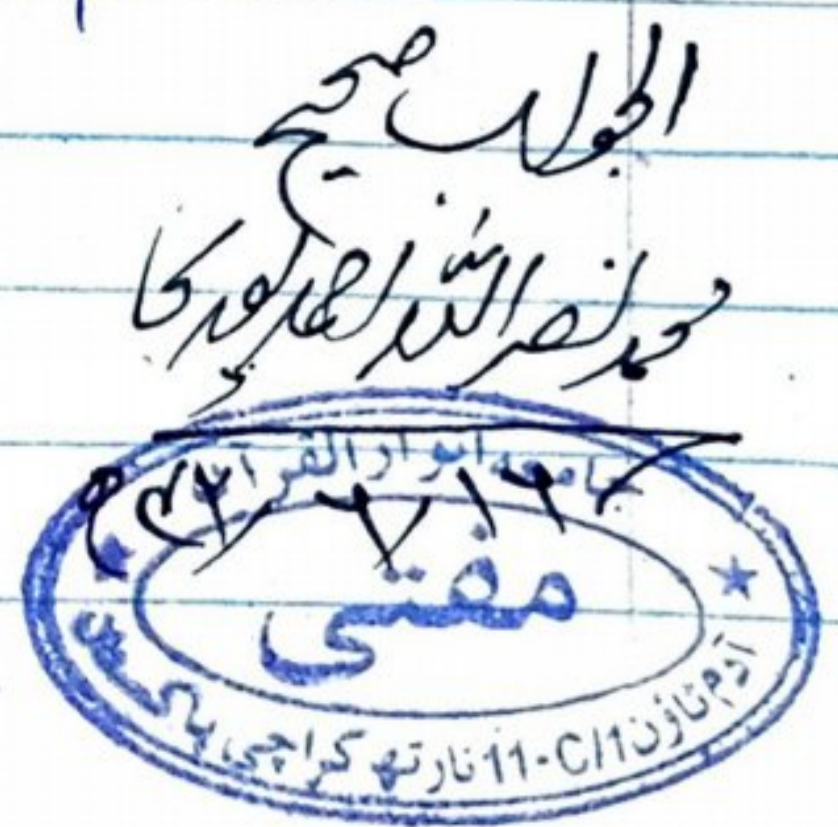 الجواب صحیح
محمد نصر اللہ احمد
جامعہ انوار القرآن
مفتی
آدم ٹاؤن 11-C/1 نارتھ کراچی پاکستان